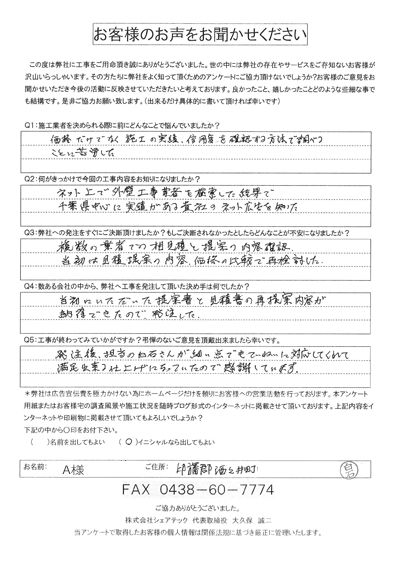 お客様のお声をお聞かせください
この度は弊社に工事をご用命頂き誠にありがとうございました。世の中には弊社の存在やサービスをご存知ないお客様が
沢山いらっしゃいます。その方たちに弊社をよく知って頂くためのアンケートにご協力頂けないでしょうか?お客様のご意見をお
聞かせいただき今後の活動に反映させていただきたいと考えております。良かったこと、嬉しかったことどのような些細な事で
も結構です。是非ご協力お願い致します。（出来るだけ具体的に書いて頂ければ幸いです）
Q1:施工業者を決められる際に前にどんなことで悩んでいましたか?
価格だけでなく施工の実績、信用度を確認する方法で調べる
ことに苦労した
Q2:何がきっかけで今回の工事内容をお知りになりましたか?
ネット上で外壁工事業者を検索した結果で
千葉県中心に実績がある貴社のネット広告を知った
Q3:弊社への発注をすぐにご決断頂けましたか?もしご決断されなかったとしたらどんなことが不安になりましたか?
複数の業者での相見積と提案の内容確認
当初は見積提案の内容、価格の比較で再検討した。
Q4:数ある会社の中から、弊社へ工事を発注して頂いた決め手は何でしたか?
当初にいただいた提案書と見積書の再提案内容が
納得できたので発注した。
Q5:工事が終わってみていかがですか?忌憚のないご意見を頂戴出来ましたら幸いです。
発注後、担当の白石さんが細い点でもていねいに対応してくれて
満足出来る仕上げになっていたので感謝しています。
＊弊社は広告宣伝費を極力かけない為にホームページだけを頼りにお客様への営業活動を行っております。本アンケート
用紙またはお客様宅の調査風景や施工状況を随時ブログ形式のインターネットに掲載させて頂いております。上記内容をイ
ンターネットや印刷物に掲載させて頂いてもよろしいでしょうか?
下記の中から〇印をお付下さい。
（　）名前を出してもよい　（〇）イニシャルなら出してもよい
お名前: A様 ご住所: 印旛郡酒々井町 白石
FAX 0438-60-7774
ご協力ありがとうございました。
株式会社シェアテック 代表取締役 大久保 誠二
当アンケートで取得したお客様の個人情報は関係法規に基づき厳正に管理いたします。